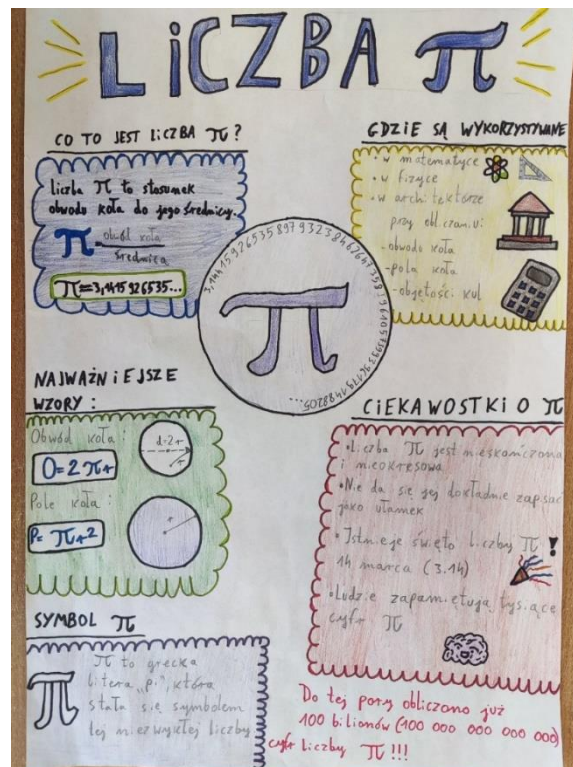 LiCZBA π
CO TO JEST LiCZBA π?
liczba π to stosunek
obwodu koła do jego średnicy.
π= obwód koła
średnica
π≈3,1415926535...
GDZIE SĄ WYKORZYSTYWANE
• w matematyce
• w fizyce
• w architekturze
przy obliczaniu:
- obwodu koła
- pola koła
- objętości kul
π
NAJWAŻNiEJSZE
WZORY:
Obwód koła:
d=2r
r
O=2πr
Pole koła:
r
P=πr²
CiEKAWOSTKI O π
• Liczba π jest nieskończona
i nieokresowa
• Nie da się jej dokładnie zapisać
jako ułamek
• Istnieje święto liczby π !
14 marca (3.14)
• Ludzie zapamiętują tysiące
cyfr π
SYMBOL π
π
π to grecka
litera „p”, która
stała się symbolem
tej niezwykłej liczby
Do tej pory obliczono już
100 bilionów (100 000 000 000 000)
cyfr liczby π !!!